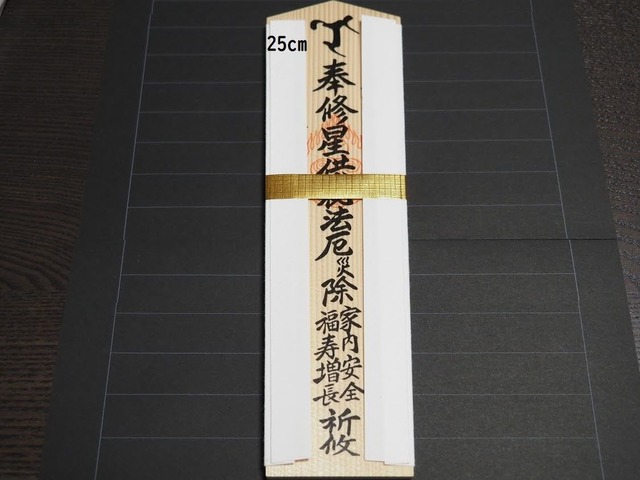 25cm
奉修星供
法厄災除
家内安全
福寿増長
祈攸